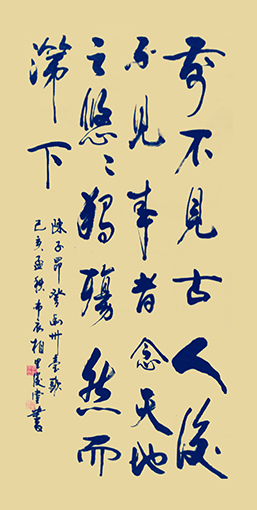 前不見古人後
不見来者念天地
之悠〻獨愴然而
涕下
陳子昂登幽州臺歌
己亥孟秋布衣相里書